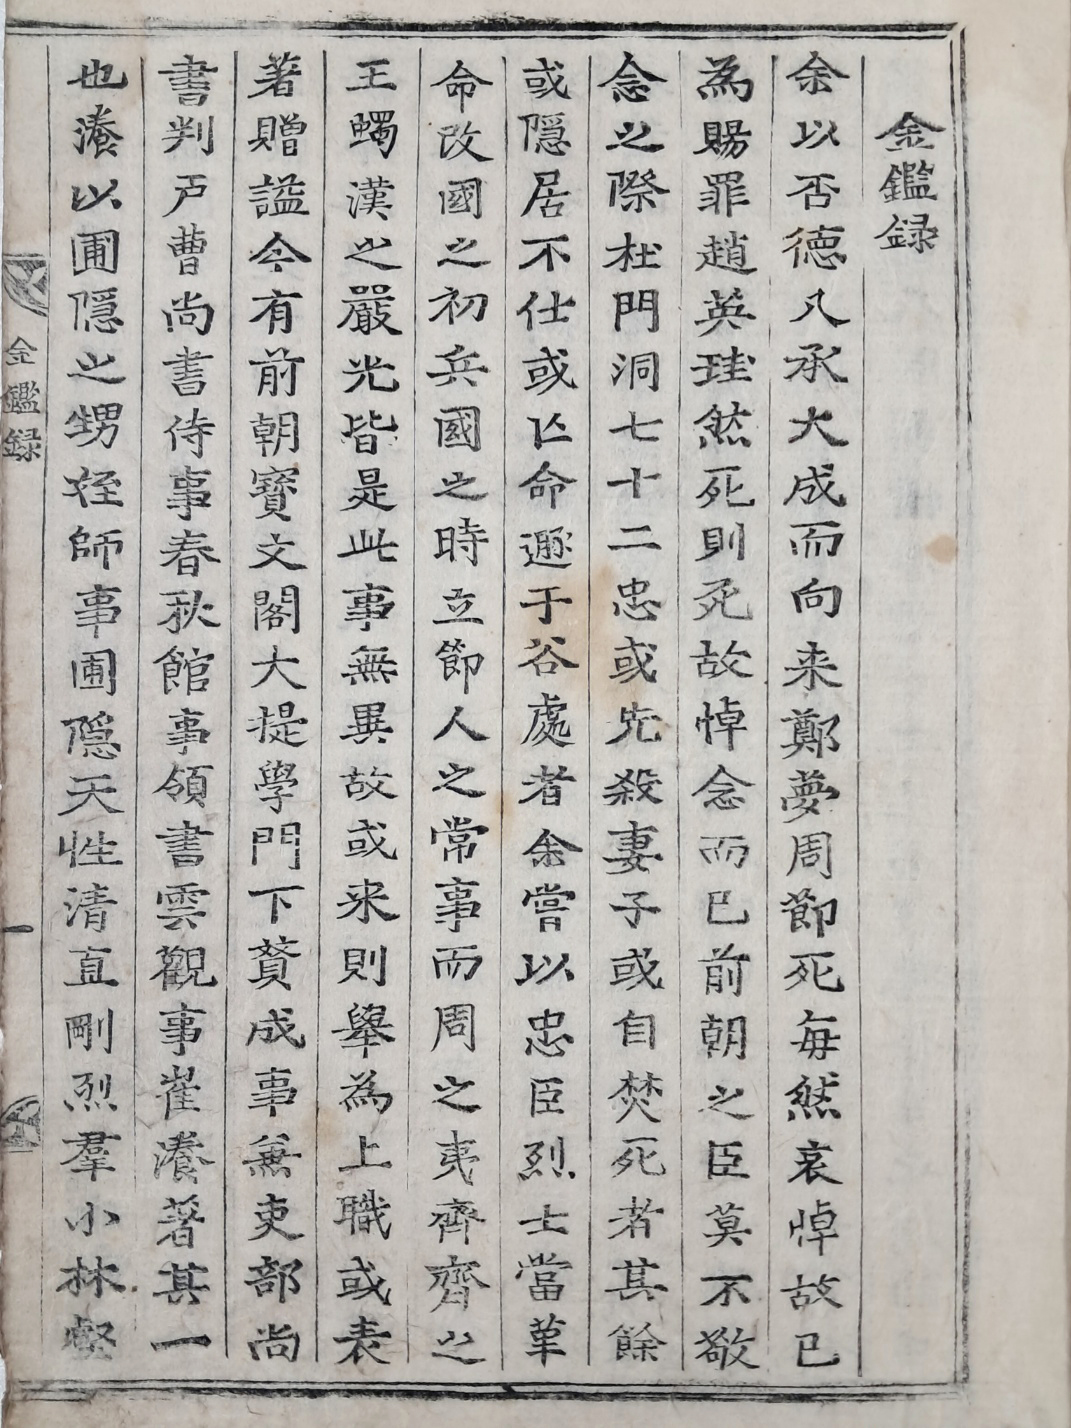 金鑑録
余以否德凡承大成而向来鄭夢周節死每然哀悼故已
為賜罪趙英珪然死則死故悼念而已前朝之臣莫不敬
念之際杜門洞七十二忠或先殺妻子或自焚死者其餘
或隱居不仕或亾命遯于谷處者余嘗以忠臣烈士當革
命改國之初兵國之時立節人之常事而周之夷齊齊之
王蠋漢之嚴光皆是此事無異故或来則舉為上職或表
著贈諡今有前朝寶文閣大提學門下贊成事兼吏部尚
書判戶曹尚書侍事春秋館事領書雲觀事崔瀁著其一
也瀁以圃隱之甥姪師事圃隱天性清直剛烈羣小林壑
金鑑録
一